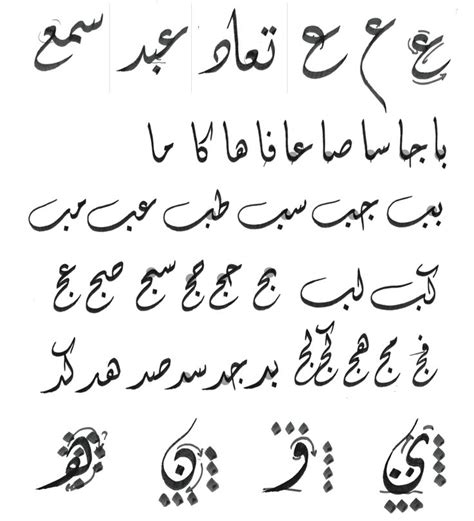 ع ع ع تعاد عبد سمع
با جا سا صا عا فا ها كا ما
بب جب سب طب عب مب
كب لب بج سج صج عج
فج مج هج كج لج بد جد سد صد هد كد
و ن